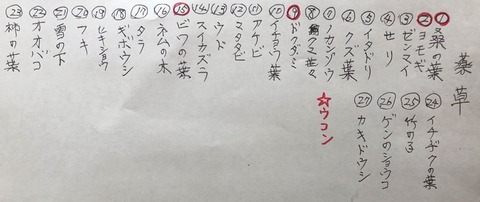 薬草
① 桑の葉
② ヨモギ
③ ゼンマイ
④ セリ
⑤ イタドリ
⑥ クズ葉
⑦ ノカンゾウ
⑧
⑨ ドクダミ
⑩ イチョウ葉
⑪ アケビ
⑫ マタタビ
⑬ ウド
⑭ スイカズラ
⑮ ビワの葉
⑯ ネムの木
⑰ タラ
⑱ ギボウシ
⑲
⑳ フキ
㉑ 雪の下
㉒ オオバコ
㉓ 柿の葉
㉔ イチヂクの葉
㉕ 竹の子
㉖ ゲンのショウコ
㉗ カキドウシ
☆ウコン